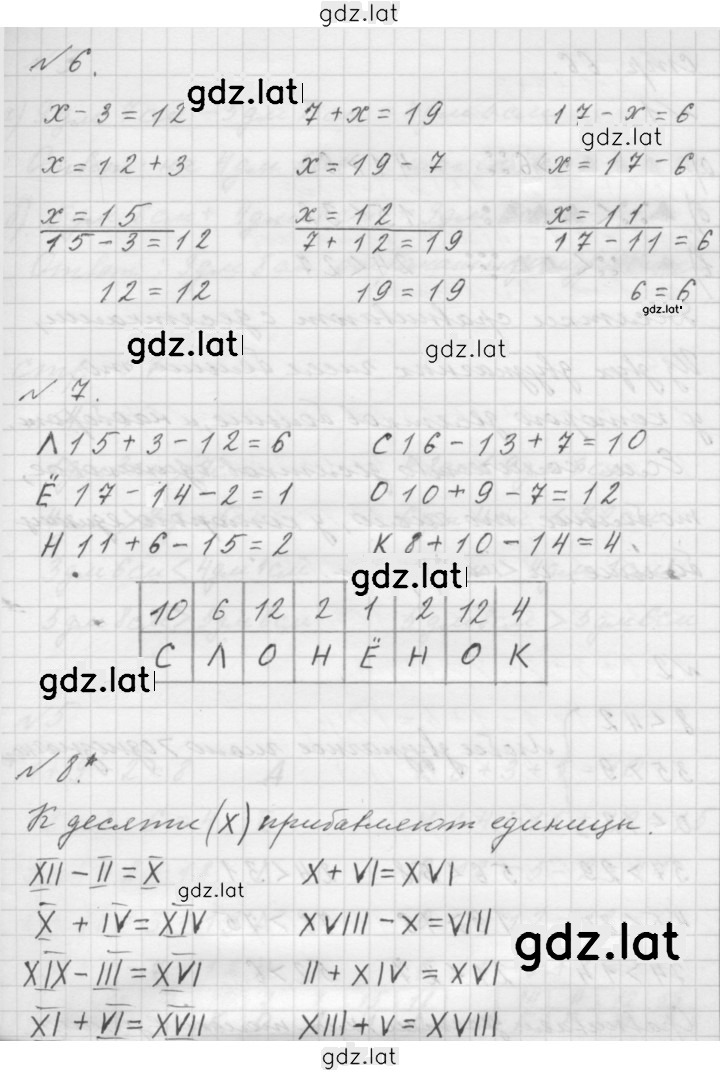 gdz.lat
№ 6.
gdz.lat
x - 3 = 12 7 + x = 19 17 - x = 6
gdz.lat
x = 12 + 3 x = 19 - 7 x = 17 - 6
x = 15 x = 12 x = 11
15 - 3 = 12 7 + 12 = 19 17 - 11 = 6
12 = 12 19 = 19 6 = 6
gdz.lat
gdz.lat gdz.lat
№ 7.
Л 15 + 3 - 12 = 6 С 16 - 13 + 7 = 10
Ё 17 - 14 - 2 = 1 О 10 + 9 - 7 = 12
Н 11 + 6 - 15 = 2 К 8 + 10 - 14 = 4.
gdz.lat
10 6 12 2 1 2 12 4
С Л О Н Ё Н О К
gdz.lat
№ 8.*
К десяти (X) прибавляют единицы.
XII - II = X X + VI = XVI
gdz.lat
X + IV = XIV XVIII - X = VIII
gdz.lat
XIX - III = XVI II + XIV = XVI
XI + VI = XVII XIII + V = XVIII
gdz.lat